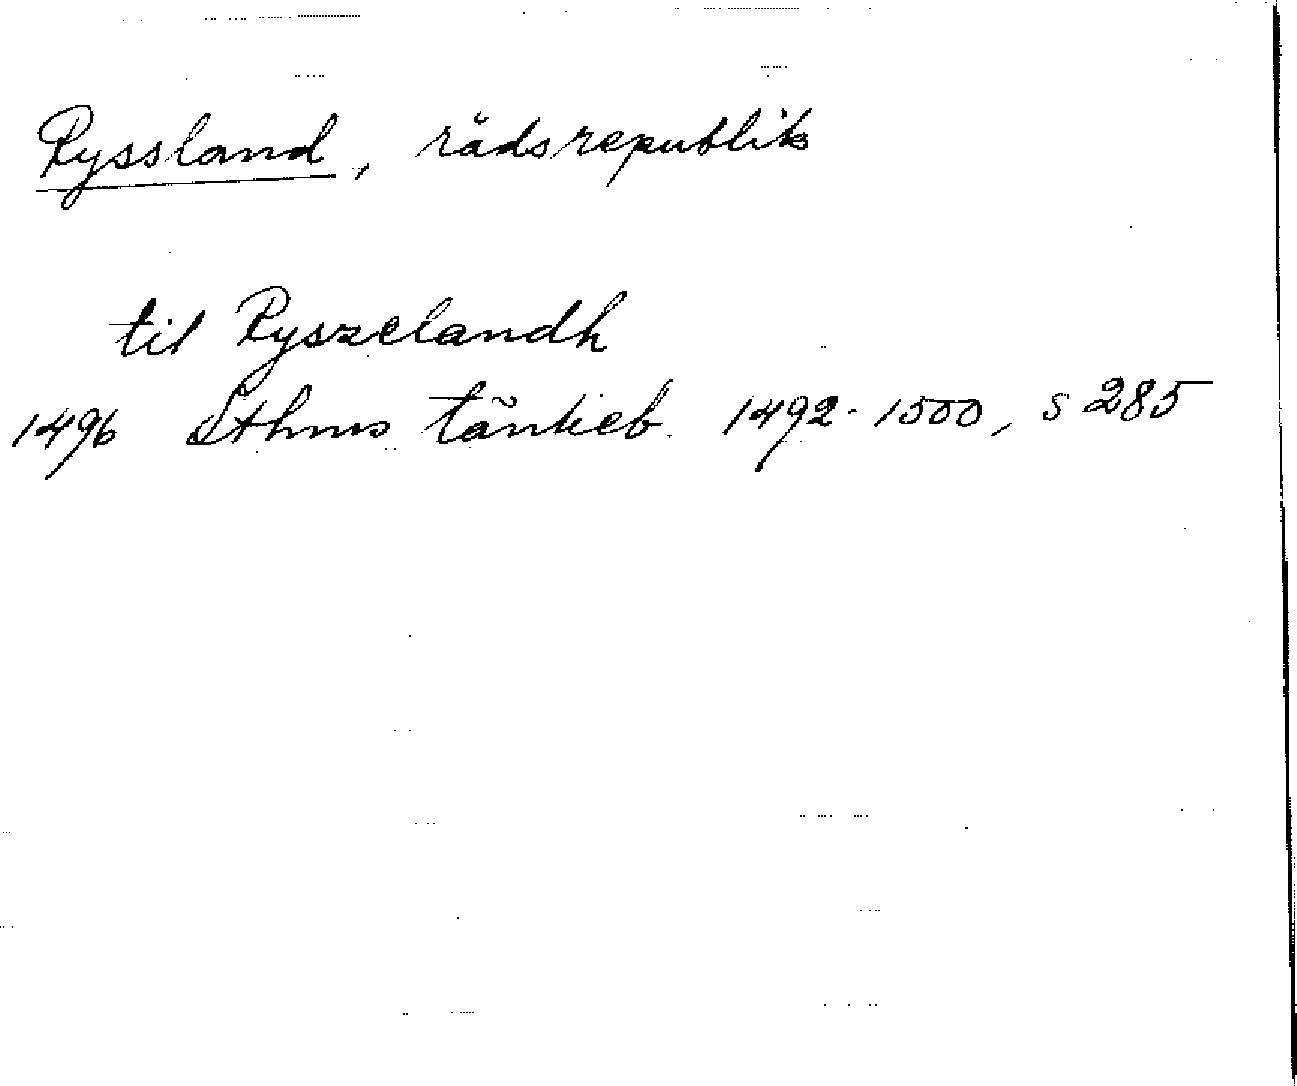 Ryssland, rådsrepublik
til Ryszelandh
1496 Sthms tänkeb. 1492-1500, s 285